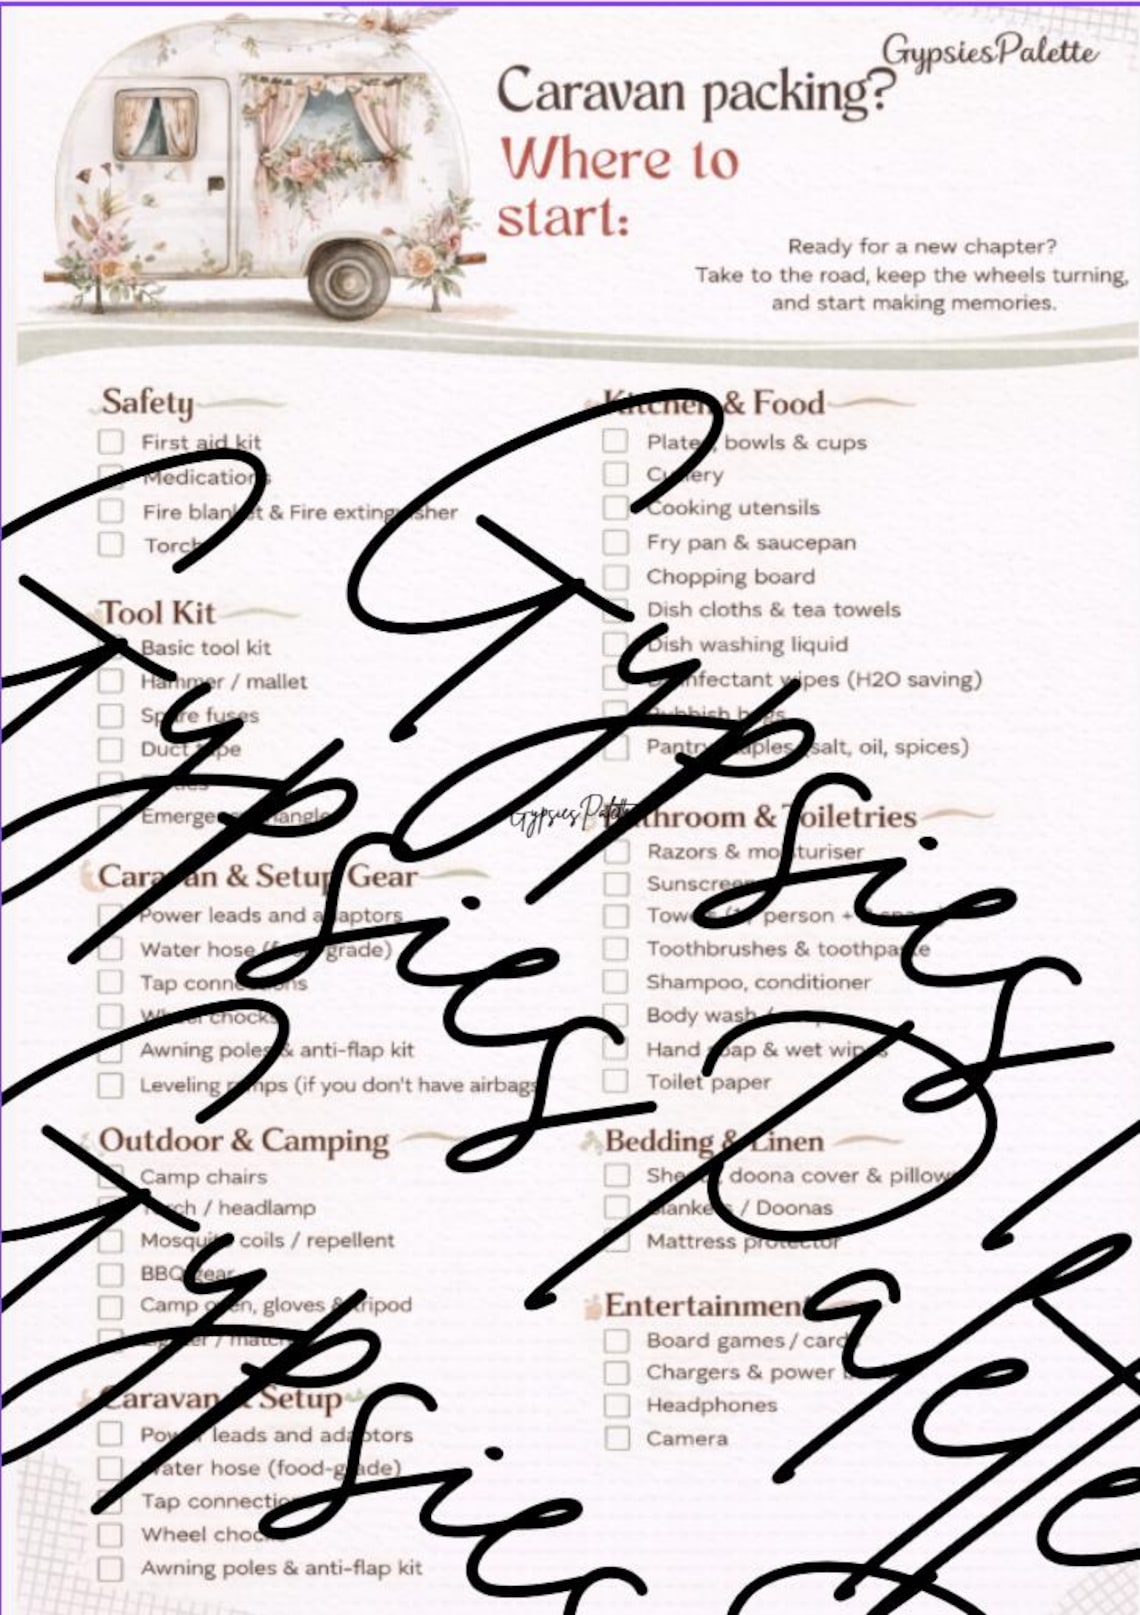 GypsiesPalette
Caravan packing?
Where to
start:
Ready for a new chapter?
Take to the road, keep the wheels turning,
and start making memories.
Safety
First aid kit
Medications
Fire blanket & Fire extinguisher
Torch
Tool Kit
Basic tool kit
Hammer / mallet
Spare fuses
Duct tape
Emergency
Caravan & Setup Gear
Power leads and adaptors
Water hose (food grade)
Tap connections
Wheel chocks
Awning poles & anti-flap kit
Leveling ramps (if you don't have airbags
Outdoor & Camping
Camp chairs
Torch / headlamp
Mosquito coils / repellent
BBQ gear
Camp oven, gloves & tripod
Lighter / matches
Caravan & Setup
Power leads and adaptors
Water hose (food-grade)
Tap connections
Wheel chocks
Awning poles & anti-flap kit
Kitchen & Food
Plates, bowls & cups
Cutlery
Cooking utensils
Fry pan & saucepan
Chopping board
Dish cloths & tea towels
Dish washing liquid
Disinfectant wipes (H2O saving)
Rubbish bags
Pantry staples (salt, oil, spices)
Bathroom & Toiletries
Razors & moisturiser
Sunscreen
Towels person +
Toothbrushes & toothpaste
Shampoo, conditioner
Body wash /
Hand soap & wet wipes
Toilet paper
Bedding & Linen
Sheets, doona cover & pillows
Blankets / Doonas
Mattress protector
Entertainment
Board games / cards
Chargers & power
Headphones
Camera
GypsiesPalette
Gypsies Palette
Gypsies
Gypsies